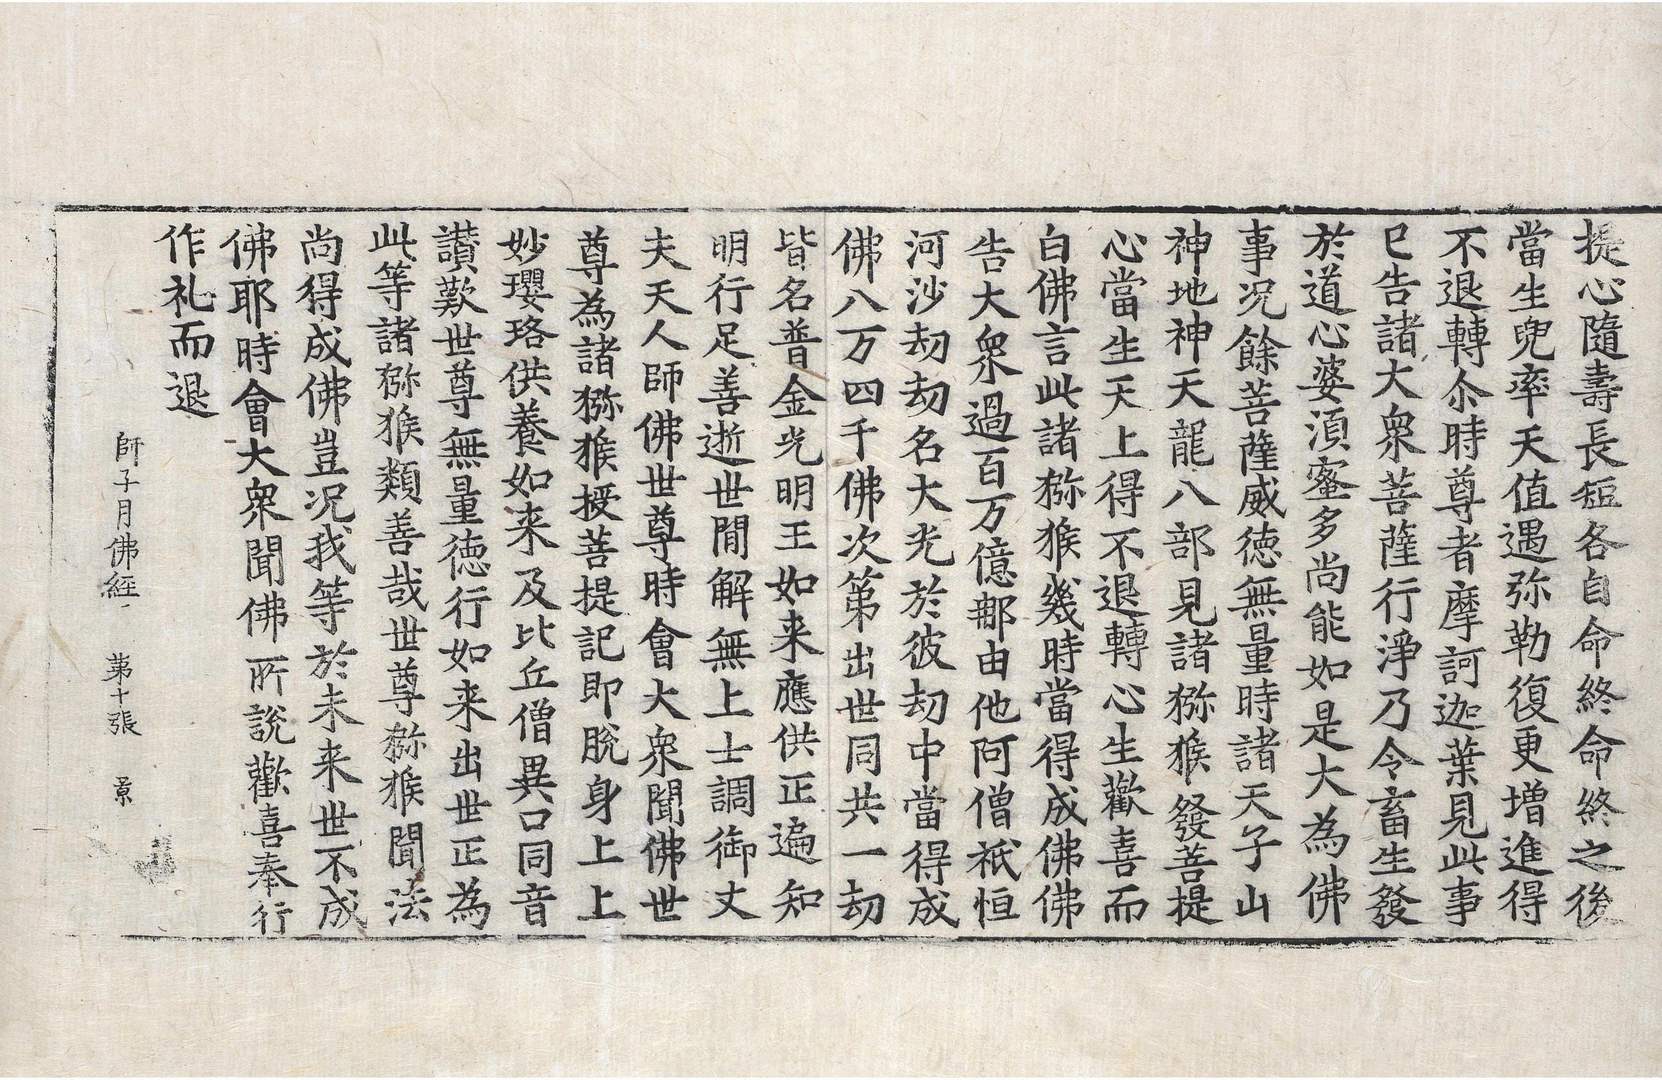 提心隨壽長短各自命終命終之後
當生兜率天值遇弥勒復更增進得
不退轉尒時尊者摩訶迦葉見此事
已告諸大衆菩薩行淨乃令畜生發
於道心婆湏蜜多尚能如是大為佛
事况餘菩薩威德無量時諸天子山
神地神天龍八部見諸猕猴發菩提
心當生天上得不退轉心生歡喜而
白佛言此諸猕猴幾時當得成佛佛
告大衆過百万億那由他阿僧祇恒
河沙劫劫名大光於彼劫中當得成
佛八万四千佛次第出世同共一劫
皆名普金光明王如来應供正遍知
明行足善逝世間解無上士調御丈
夫天人師佛世尊時會大衆聞佛世
尊為諸猕猴授菩提記即脫身上上
妙瓔珞供養如来及比丘僧異口同音
讃歎世尊無量德行如来出世正為
此等諸猕猴類善哉世尊猕猴聞法
尚得成佛豈况我等於未来世不成
佛耶時會大衆聞佛所說歡喜奉行
作礼而退
師子月佛經 第十張 景